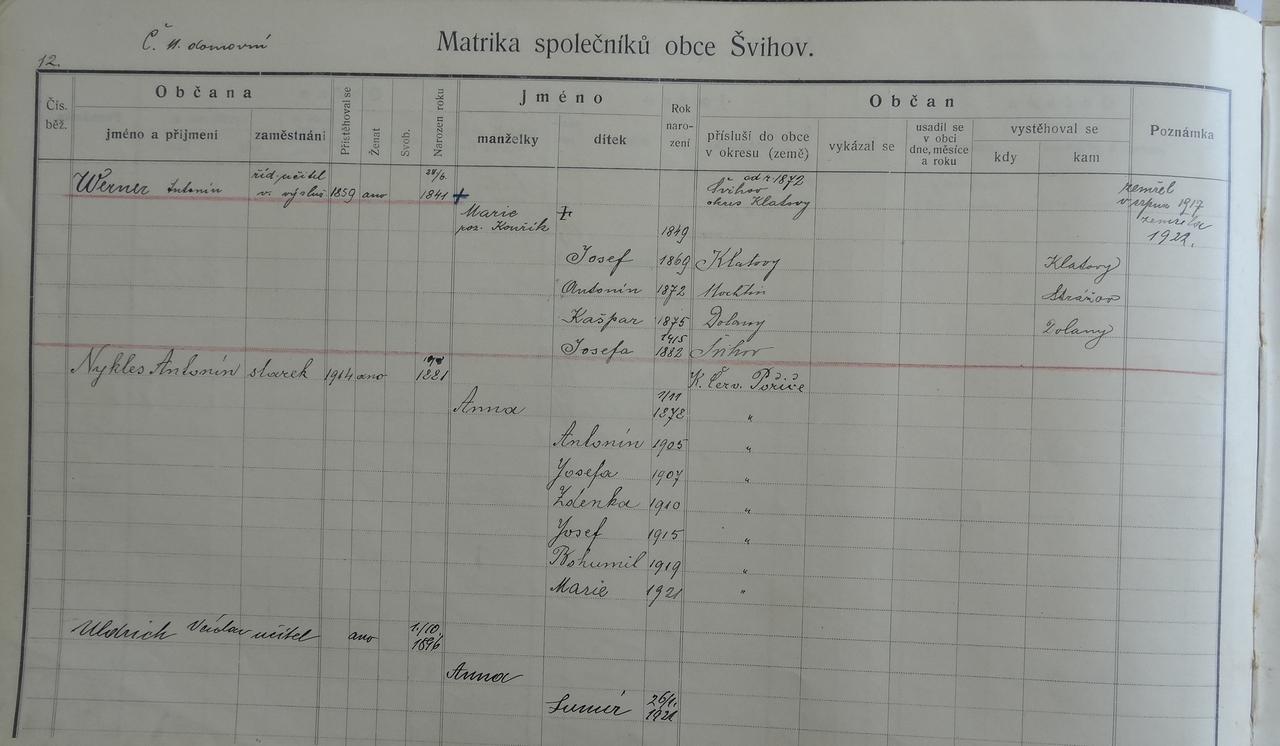 12.
Č. 11. domovní
Matrika společníků obce Švihov.
Čís. běž.
Občana
jméno a přijmení
zaměstnání
Přistěhoval se
Ženat
Svob.
Narozen roku
Jméno
manželky
dítek
Rok naro- zení
Občan
přísluší do obce v okresu (země)
vykázal se
usadil se v obci dne, měsíce a roku
vystěhoval se
kdy
kam
Poznámka
Werner Antonín říd. učitel v. výsluž 1859 ano 1841 + od r. 1872 Švihov okres Klatovy zemřel v srpnu 1917
Marie roz. Kouřík 1849 1922.
Josef 1869 Klatovy Klatovy
Antonín 1872 Mochtín Strážov
Kašpar 1875 Dolany Dolany
Josefa 1882 1915 Švihov
Nykles Antonín stárek 1914 ano 1881 K. Červ. Poříčí
Anna 1/11 1878 "
Antonín 1905 "
Josefa 1907 "
Zdenka 1910 "
Josef 1915 "
Bohumil 1919 "
Marie 1921 "
Uldrich Václav učitel ano 1./10. 1896
Anna
Lumír 26/1. 1921